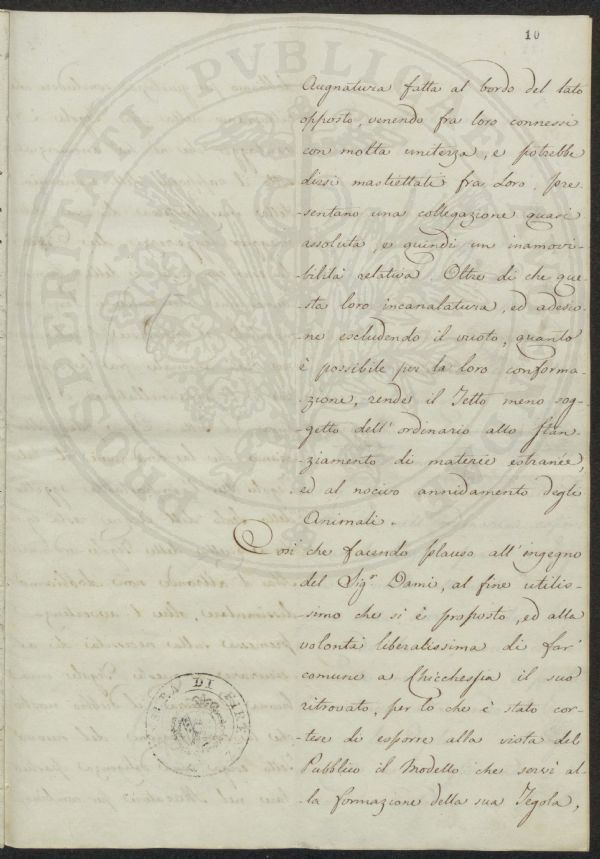 10
Augnatura fatta al bordo del lato
opposto, venendo fra loro connessi
con molta unitezza, e potrebbe
dirsi mastiettati fra Loro, pre-
-sentano una collegazione quasi
assoluta, e quindi un inamovi-
-bilità relativa. Oltre di che que-
-sta loro incanalatura, ed adesio-
-ne escludendo il vuoto, quanto
è possibile per la loro conforma-
-zione, rende il Tetto meno sog-
-getto dell' ordinario allo stan-
-ziamento di materie estranée,
ed al nocivo annidamento degli
Animali.
Così che facendo plauso all' ingegno
del Sig.r Dami, al fine utilis-
-simo che si è proposto, ed alla
volontà liberalissima di far'
comune a Chicchessia il suo
ritrovato, per lo che è stato cor-
-tese di esporre alla vista del
Pubblico il Modello che servì al-
-la formazione della sua Tegola,
PROSPERITATI PVBLICAE
DI FIRE